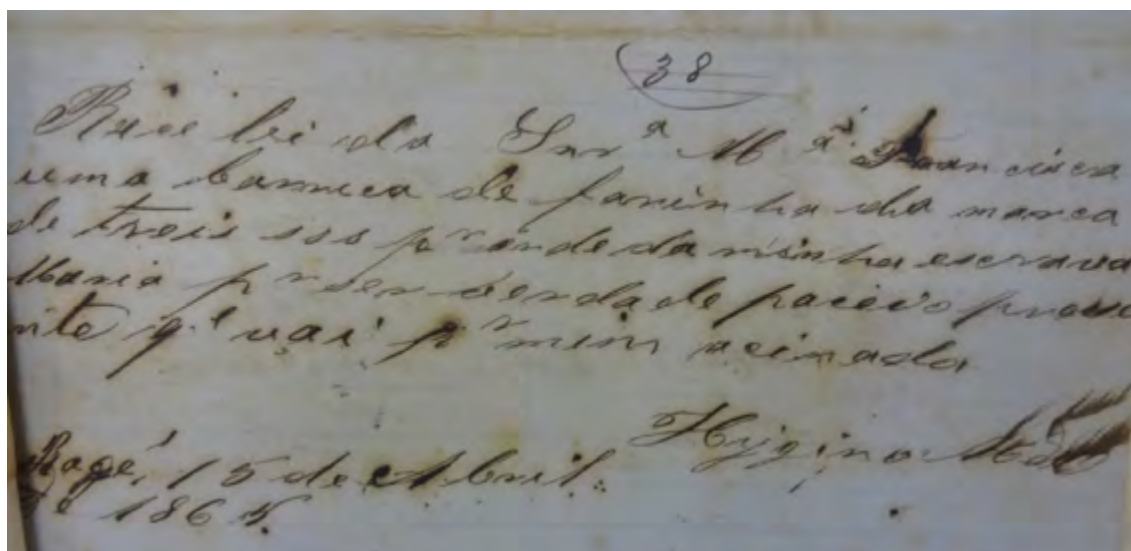 38
Rice bei da Snrª Mª Francisca
uma barrica de farinha da marca
de treis sss pr onde da minha escrava
Maria pr ser verdade pacei o prese
nte qe vai pr mim acinado
Bagé, 15 de Abril
de 1865.
Hygino